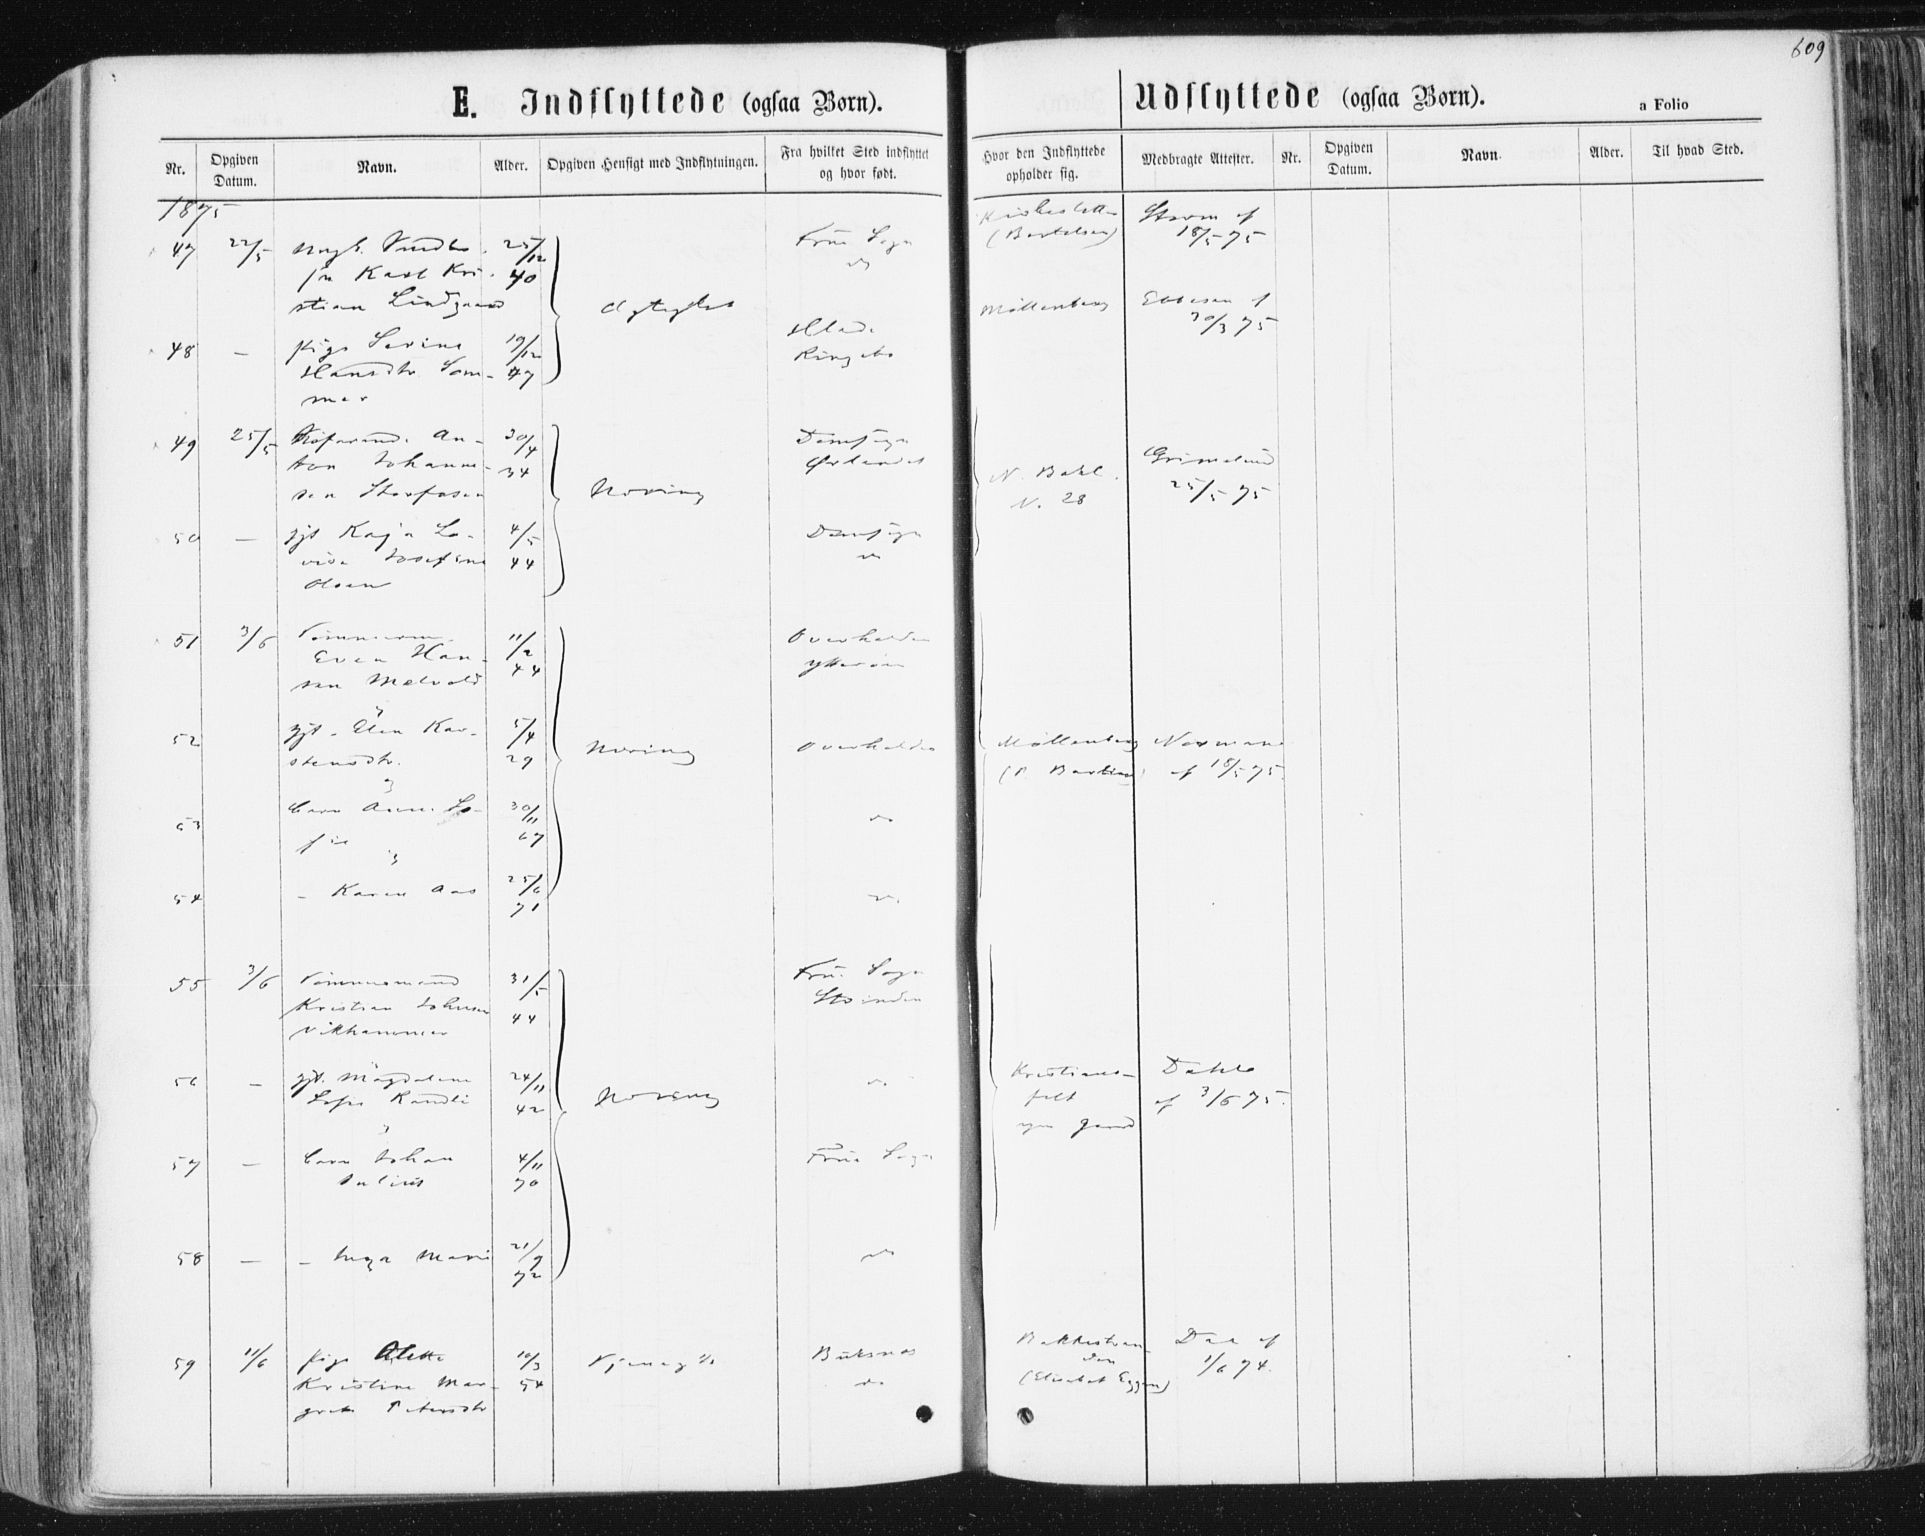 609
E. Indflyttede (ogsaa Børn).
Udflyttede (ogsaa Børn).
a Folio
Nr. Opgiven Datum. Navn. Alder. Opgiven Hensigt med Indflytningen. Fra hvilket Sted indflyttet og hvor født. Hvor den Indflyttede opholder sig. Medbragte Attester. Nr. Opgiven Datum. Navn. Alder. Til hvad Sted.
1875
47 22/5 25/12 Frue Sogn Storm af
Karl Kri- 40 do (Bertelsen) 18/5 75
stian Lindgaard
Møllenberg Ebbesen af
30/3 75
48 — pige Serine 19/12 Hlade
Hansdtr. Som- 47 Ringebo
mer
49 25/5 An- 30/4 Domsogn
ton Johanne- 34 Ørlandet Grimelund
sen Næring N. Bakl. 25/5 75
N. 28
50 — gift Kaja Lo- 4/5 Domsogn
vise Josefine 44 do
Olsen
51 3/6 Tømmerm. 11/2 Overhalden
Even Han- 44 Ytterøen
sen Melvold
52 gift. Elen Kar- 5/4 Næring Overhalden Møllenberg Normann
stensdtr. 29 af 18/5 75.
53 barn Anne So- 30/11 do
fie 67
54 – Karen Aas 25/6 do
71
55 3/6 Tømmermand 31/5 Frue Sogn
Kristian Johnsen 44 Strinden
Vikhammer
56 — gift. Magdalene 24/11 do Kristians- Dahle
42 Næring felt af 3/6 75.
57 — barn Johan 4/11 Frue Sogn
Julius 70
58 — – Inga Marie 21/9 do
72
59 11/6 pige Alette 10/3 Tjeneste Buksnes Bakkestran- Daa af
Kristine Mar- 54 do den 1/6 74.
grete Petersdtr (Elisabet Eggen)